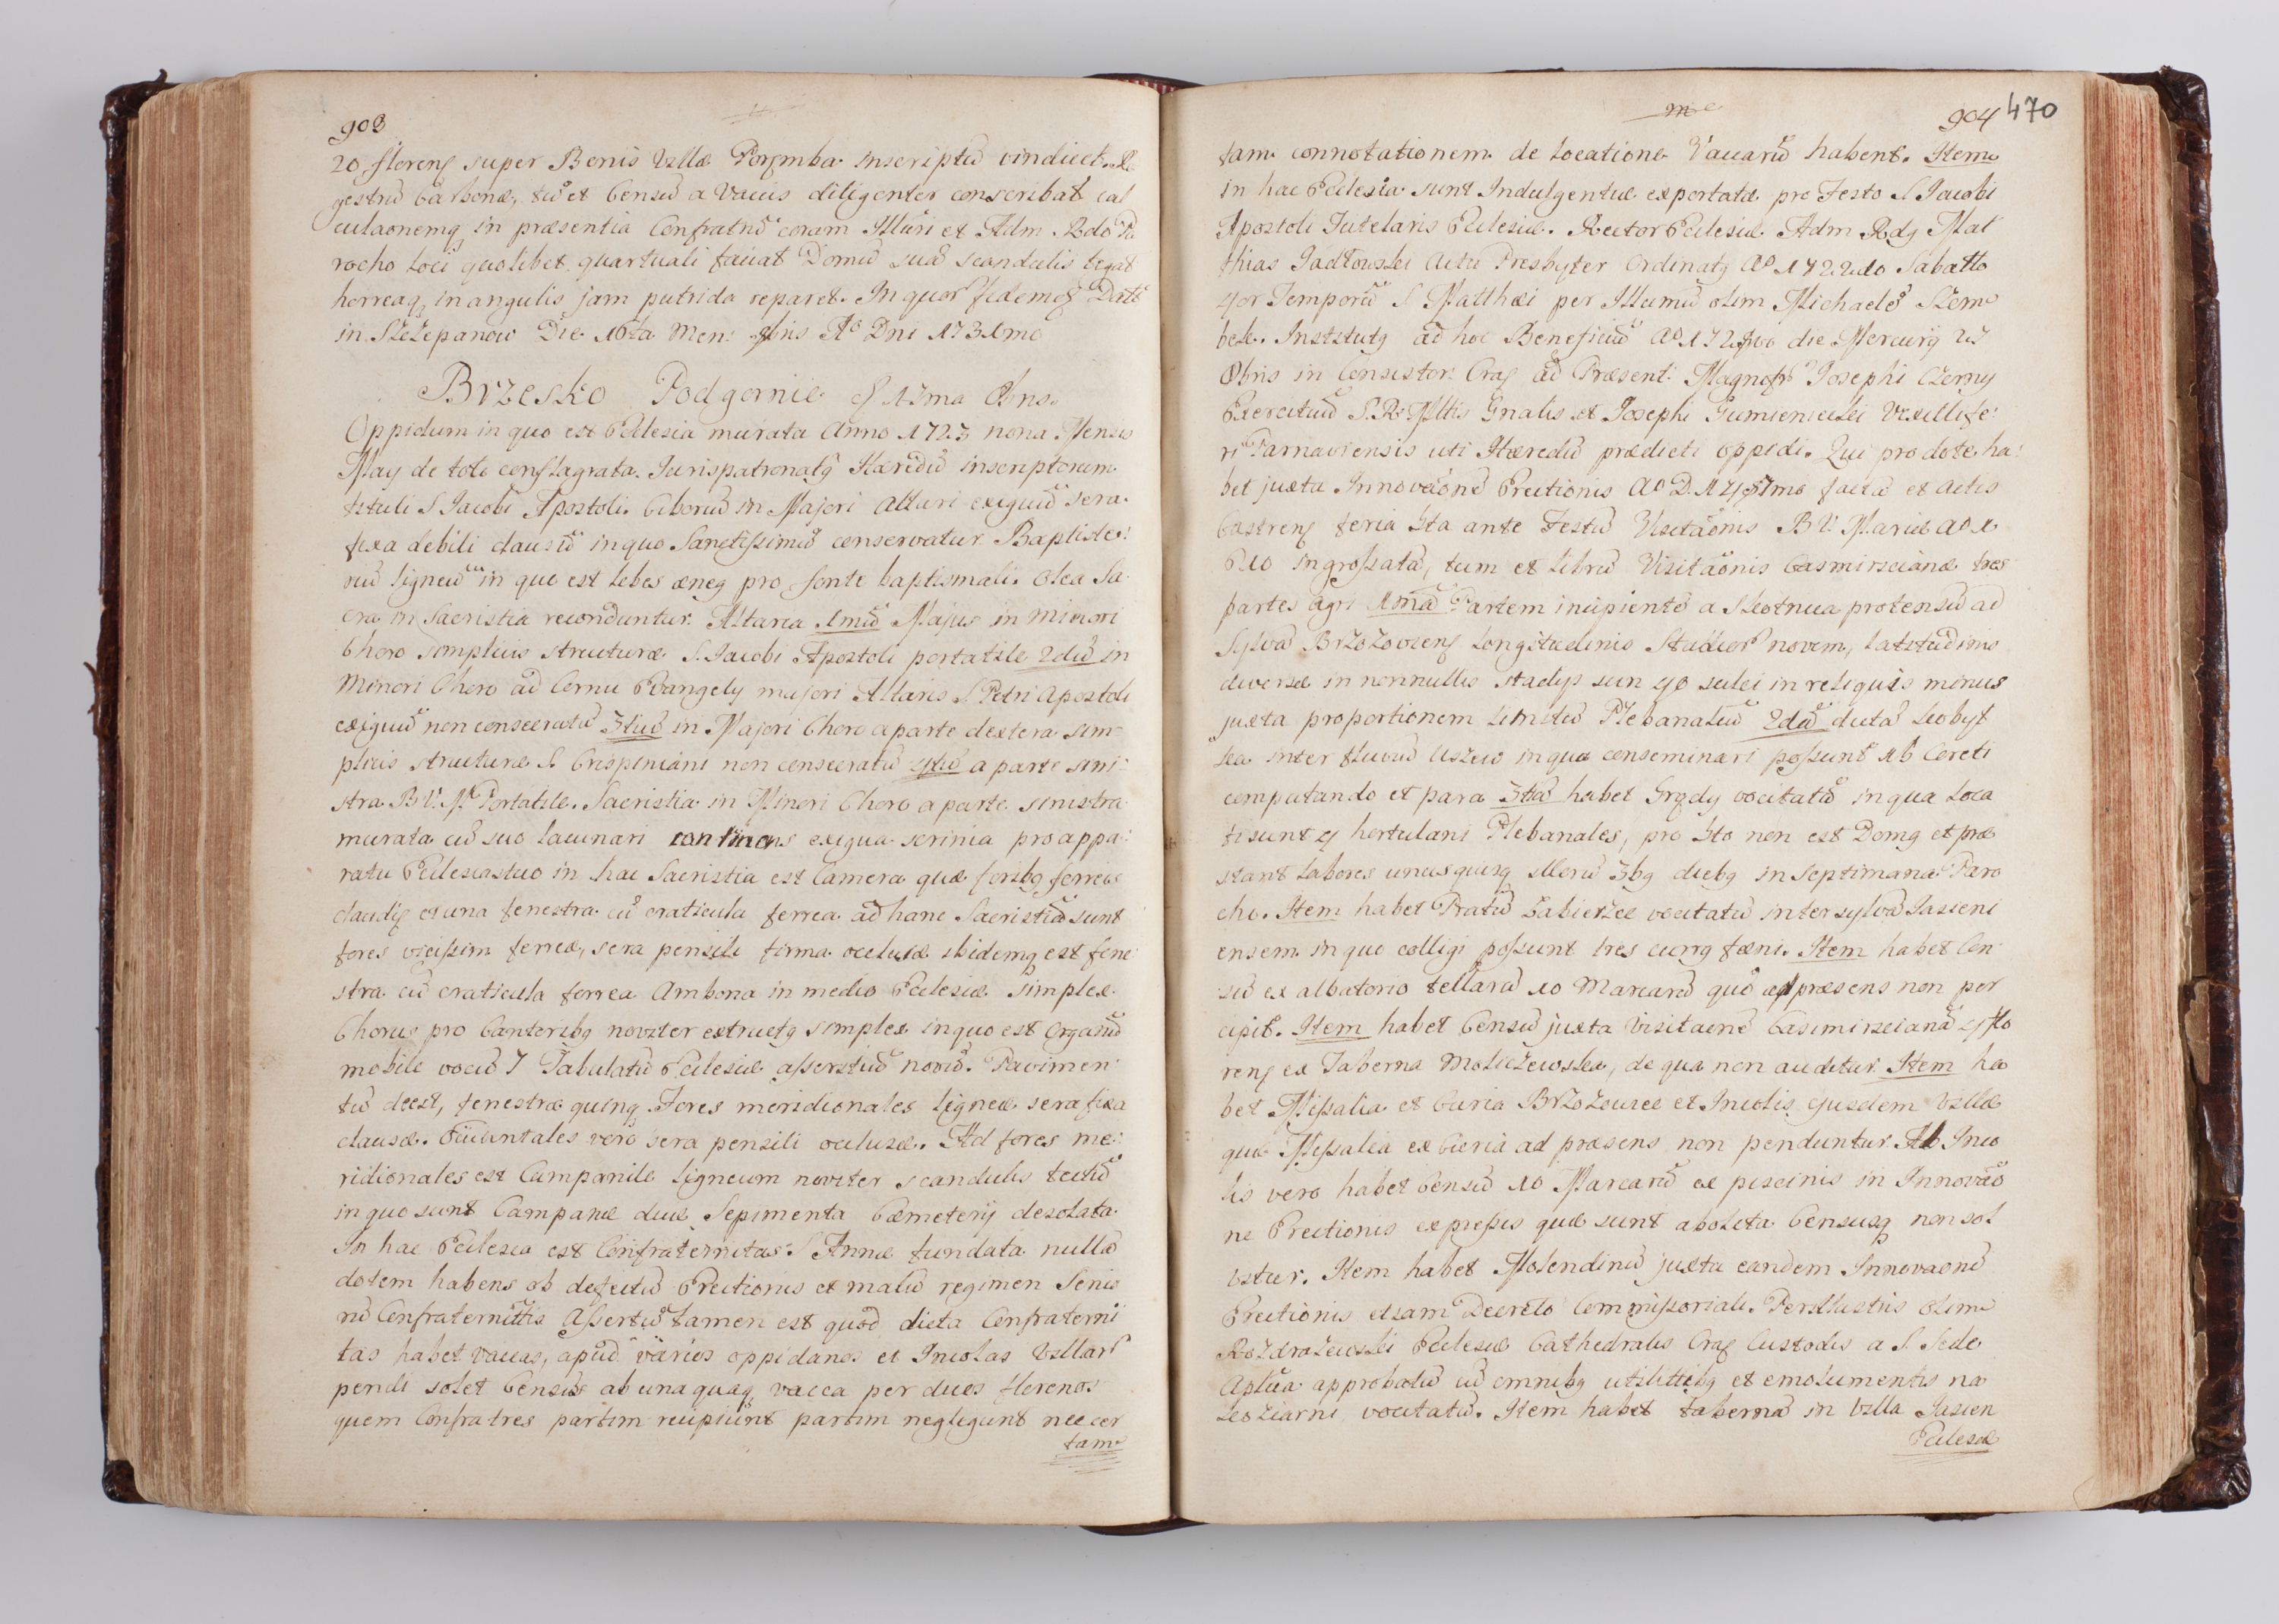 903
20 florens super Bonis Villæ Poręmba inscriptũ vindicet. Re
gestrũ Carbonæ, tũ et Censũ a Vaccis diligenter conscribat cal
culaõnemq in præsentia Confratrũ coram Illuri et Adm Rdo Pa
rocho loci quolibet quartuali faciat Domũ suã scandulis tegat
horreaq in angulis jam putrida reparet. In quor fidemq Datt
in Szczepanow Die 16ta Men: Xbris Aō Dni 1731mo
Brzesko Podgornie 13ma Xbris
Oppidum in quo est Ecclesia murata Anno 1723 nona Mensis
May de toto conflagrata. Jurispatronatq Hæredũ inscriptorum
tituli S Jacobi Apostoli. Ciboriũ in Majori Altari exiguũ sera
fixa debili clausũ in quo Sanctissimũ conservatur Baptiste:
riũ ligneũ in quo est lebes æneq pro fonte baptismali. Olea Sa
cra in Sacristia reconduntur. Altaria 1mũ Majus in minori
Choro simplicis structuræ S. Jacobi Apostoli portatile 2dũ in
Minori Choro ad Cornu Evangely majori Altaris S Petri Apostoli
exiguũ non consecratũ 3tiũ in Majori Choro a parte dextera sim
plicis structuræ S. Crispiniani non consecratũ 4tũ a parte sini:
stra B.V.M. Portatile. Sacristia in Minori Choro a parte sinistra
murata cũ suo lacunari continens exigua scrinia pro appa:
ratu Ecclesiastico in hac Sacristia est Camera quæ foribq ferreis
claudiç et una fenestra cũ craticula ferrea ad hanc Sacristiã sunt
fores vicissim ferreæ, sera pensili firma occlusæ ibidemq est fene:
stra cũ craticula ferrea Ambona in medio Ecclesiæ simplex
Chorus pro Cantoribq noviter extructq simplex in quo est Organũ
mobile vocũ 7 Tabulatũ Ecclesiæ asseritiũ novũ. Pavimen:
tũ deest, fenestræ quinq. Fores meridionales ligneæ sera fixa
clausæ. Occidentales vero sera pensili occlusæ. Ad fores me:
ridionales est Campanile ligneum noviter scandulis tectũ
in quo sunt Campanæ duæ Sepimenta Cæmeterij desolata
In hac Ecclesia est Confraternitas S Annæ fundata nullã
dotem habens ob defectũ Erectionis et malũ regimen Senio
rũ Confraternittis Assertũ tamen est quod dicta Confraterni
tas habet vaccas, apud varios oppidanos et Incolas Villar
pendi solet Census ab una quaq vacca per duos florenos
quem Confratres partim recipiunt partim negligunt nec cer
tam
904 470
tam connotationem de locatione Vaccarũ habent. Item
in hac Ecclesia sunt Indulgentiæ exportatæ pro Festo S Jacobi
Apostoli Tutelaris Ecclesiæ. Rector Ecclesiæ Adm Rdq Mat
thias Jadłowski Actu Presbyter Ordinatq Aō 1722do Sabatto
4or Temporũ S Matthæi per Illumũ olim Michaelẽ Szem
bek. Institutq ad hoc Beneficiũ Aō die Mercurij
Xbris in Consistor: Crac ad Præsent: Magnofr Josephi Czerny
Exercituũ S.R. Mttis Gnalis et Josephi Gumienicki Vexillife:
ri Parnaviensis uti Hæredũ prædicti oppidi. Qui pro dote ha:
bet juxta Innovãonẽ Erectionis Aō D. factã et Actis
Castrens feria 5ta ante Festũ Visitãonis B V. Mariæ Aō 1
610 ingrossatã, tum et librũ Visitãonis Casmirscianæ tres
partes agri 1mã Partem incipientẽ a Słotnica protensũ ad
Sylvã Brzozoviens longitudinis Studior novem, latitudinis
diversæ in nonnullis stadys sun 40 sulci in reliquis minus
juxta proportionem limitũ Plebanaliũ 2dã dictã Leobyl
ka inter fluviũ Uszew in qua conseminari possunt 16 Coreti
computando et para 3tiã habet Grądy vocitatũ in qua loca
ti sunt 4 hortulani Plebanales, pro 5to non est Domq et præ
stant labores unusquisq illorũ 3bq diebq in septimana Paro
cho. Item habet Pratũ Zabierzee vocitatũ inter sylvã Jasieni
ensem in quo colligi possunt tres currq fæni. Item habet Cen:
sũ ex albatorio tellarũ 10 Marcarũ quẽ ad præsens non per
cipit. Item habet Censũ juxta Visitaõnẽ Casimirscianã 4 flo
rens ex Taberna Mokrzewska, de qua non auditur. Item ha
bet Missalia ex Curia Brzozowiec et Incolis ejusdem Villæ
quæ Missalia ex Curia ad præsens non penduntur. Ab Inco
lis vero habet Censũ 10 Marcarũ ex piscinis in Innovão
ne Erectionis expressis quæ sunt abolita Censusq non sol
vitur. Item habet Molendinũ juxta eandem Innovaonẽ
Erectionis etiam Decreto Commissoriali. Perillustris olim
Rozdrażewski Ecclesiæ Cathedralis Crac Custodis a S. Sede
Aplica approbatũ cũ omnibq utilittibq et emolumentis na
vocitatũ. Item habet tabernã in Villa Jasien
Ecclesiæ